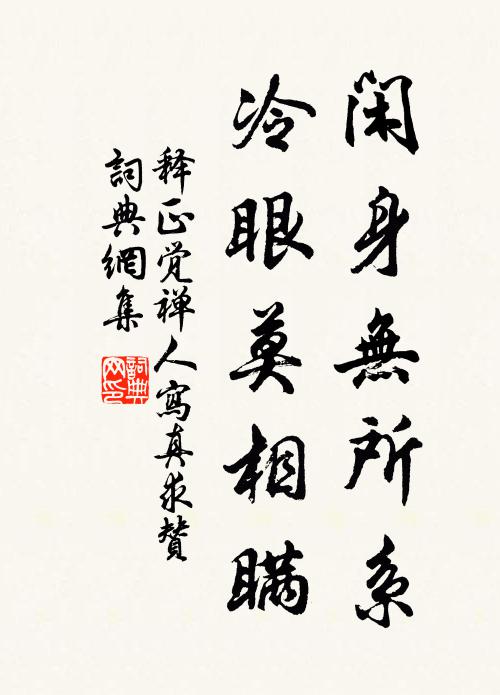 闲身無所系
冷眼莫相瞒
释正觉禅人寫真求賛
詞典網集
詞典
网印